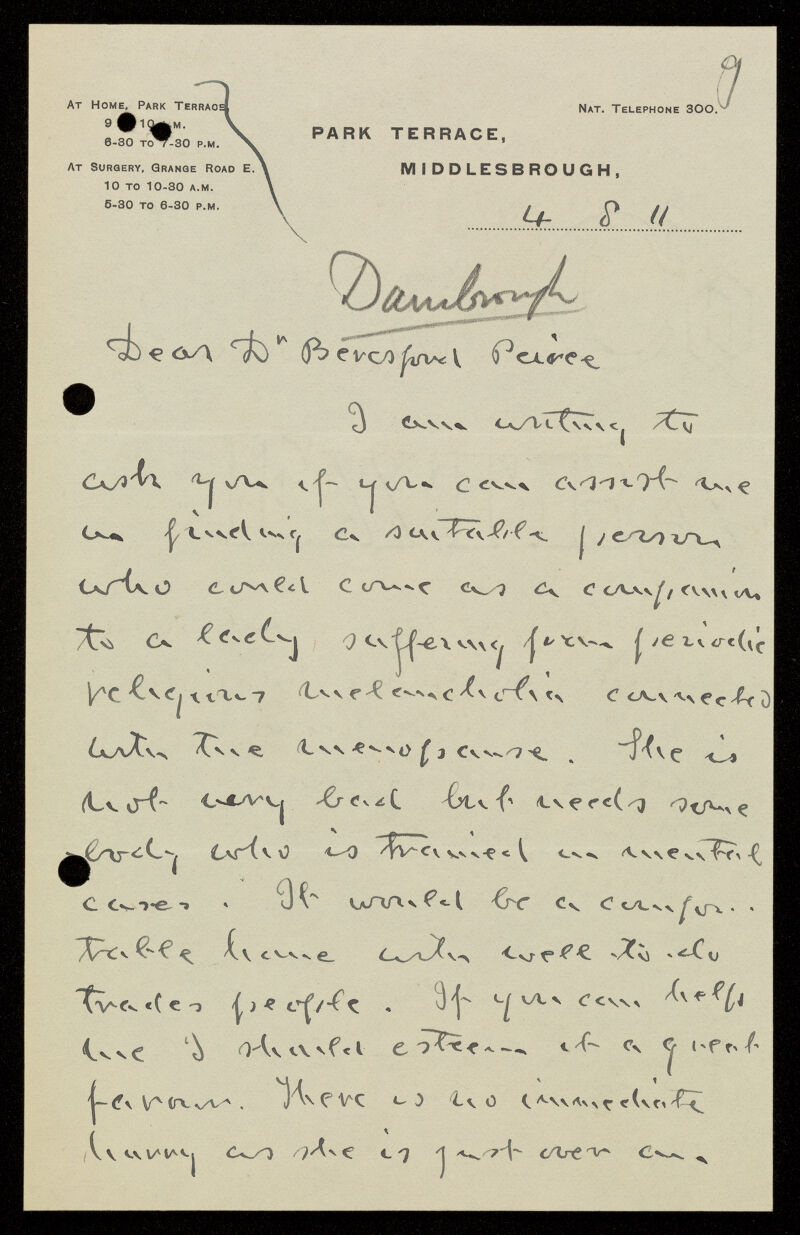 9
AT HOME, PARK TERRACE,
9 10 M.
6-30 TO 7-30 P.M.
AT SURGERY, GRANGE ROAD E.
10 TO 10-30 A.M.
5-30 TO 6-30 P.M.
NAT. TELEPHONE 300.
PARK TERRACE,
MIDDLESBROUGH,
4 8 11
Dambrough
Dear Dr Beresford Peirce
I am writing to
ask you if you can assist me
in finding a suitable person
who could come as a companion
to a lady suffering from periodic
religious melancholia connected
with the menopause. She is
not very bad but needs some
body who is trained in mental
cases. It would be a comfor..
table home with well-to-do
trades people. If you can help
me I should esteem it a great
favour. There is no immediate
hurry as she is just over an